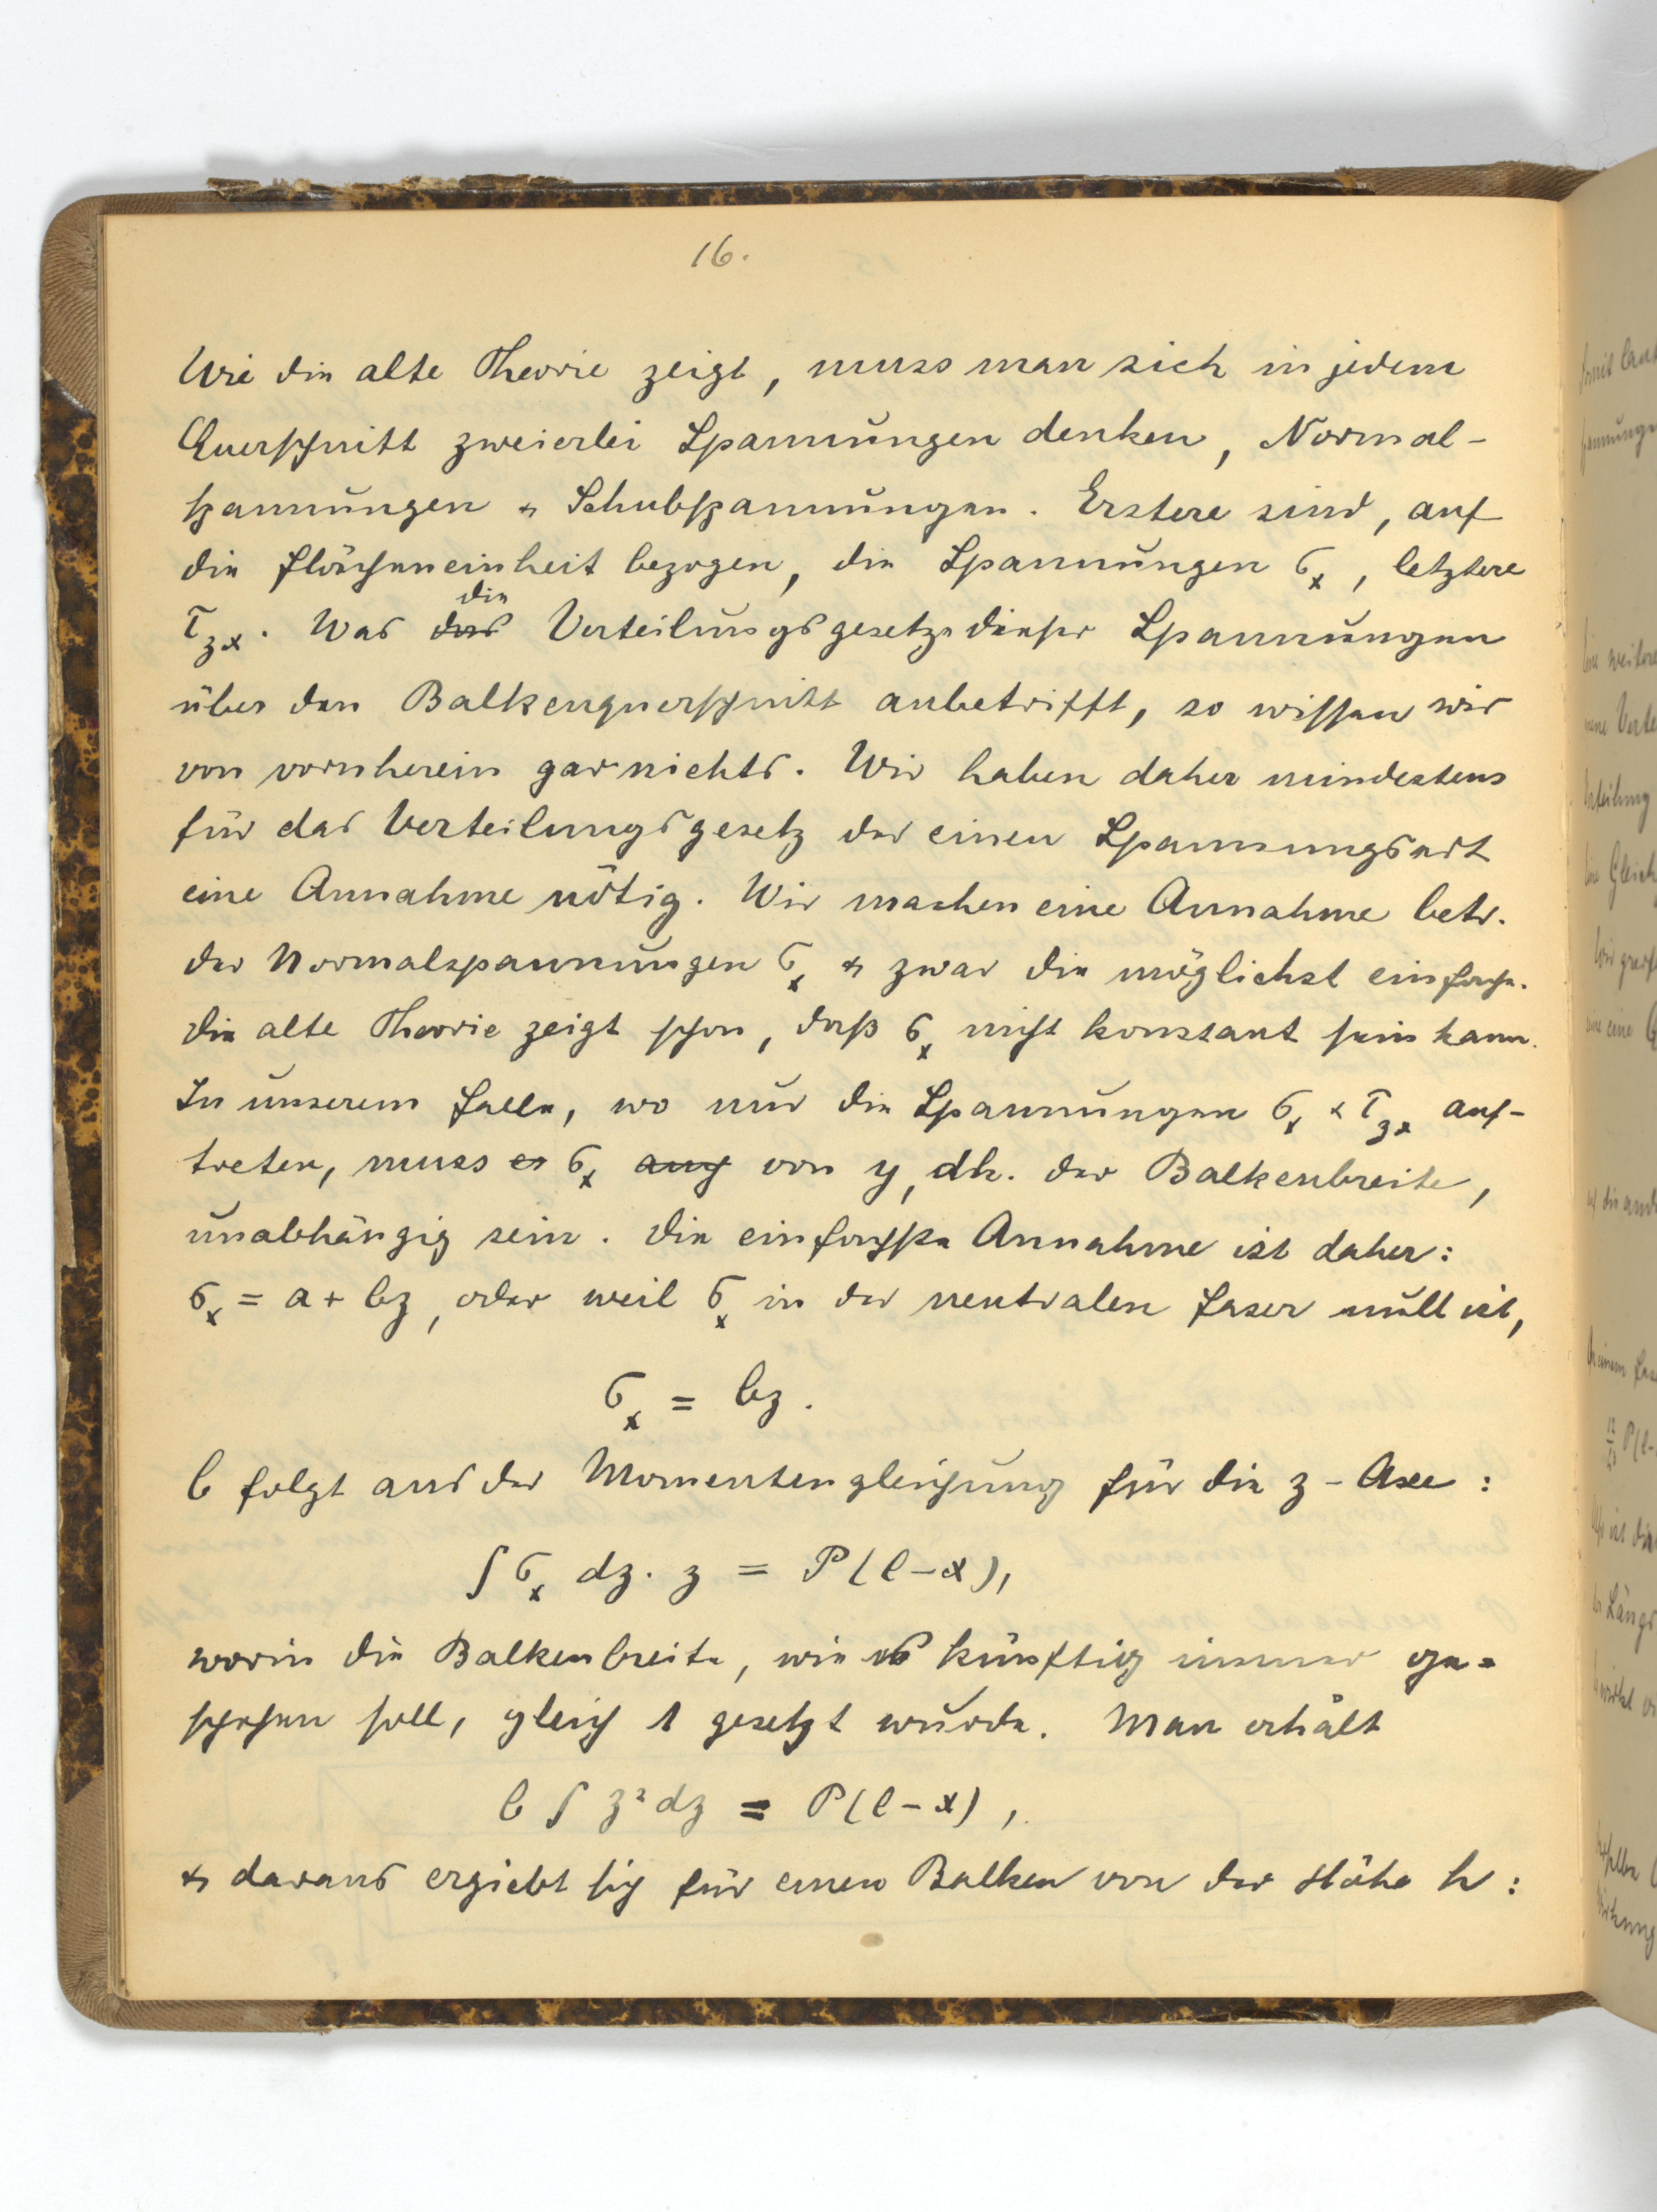 16.
Wie die alte Theorie zeigt, muss man sich in jedem
Querschnitt zweierlei Spannungen denken, Normal-
spannungen & Schubspannungen. Erstere sind, auf
die Flächeneinheit bezogen, die Spannungen σx, letztere
die
τzx. Was das Verteilungsgesetze dieser Spannungen
über den Balkenquerschnitt anbetrifft, so wissen wir
von vornherein garnichts. Wir haben daher mindestens
für das Verteilungsgesetz der einen Spannungsart
eine Annahme nötig. Wir machen eine Annahme betr.
der Normalspannungen σx & zwar die möglichst einfache.
Die alte Theorie zeigt schon, daß σx nicht konstant sein kann.
In unserem Falle, wo nur die Spannungen σx & τzx auf-
treten, muss es σx auch von y, dh. der Balkenbreite,
unabhängig sein. Die einfachste Annahme ist daher:
σx = a + bz, oder weil σx in der neutralen Faser null ist,
σx = bz.
b folgt aus der Momentengleichung für die z-Axe:
∫σx dz. z = P(l-x),
worin die Balkenbreite, wie es künftig immer ge=
schehen soll, gleich 1 gesetzt wurde. Man erhält
b ∫ z² dz = P(l-x),
& daraus ergiebt sich für einen Balken von der Höhe h:
mit
spannungen
Eine weitere
neue
Verteilung